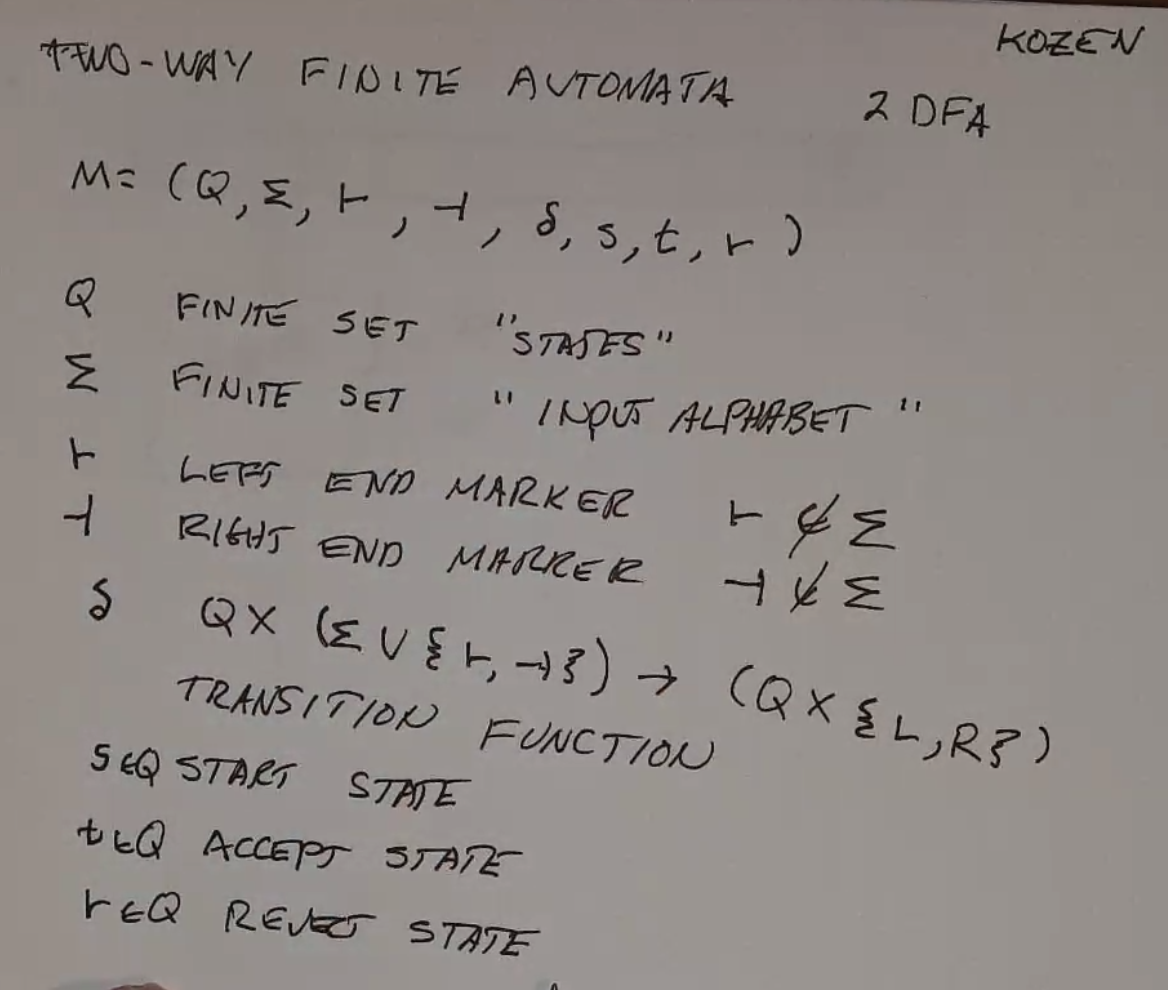 KOZEN
TWO-WAY FINITE AUTOMATA 2 DFA
M= (Q, Σ, ⊢, ⊣, δ, s, t, r)
Q FINITE SET "STATES"
Σ FINITE SET "INPUT ALPHABET"
⊢ LEFT END MARKER ⊢ ∉ Σ
⊣ RIGHT END MARKER ⊣ ∉ Σ
δ Q× (Σ ∪ {⊢, ⊣}) → (Q × {L, R})
TRANSITION FUNCTION
S ∈ Q START STATE
t ∈ Q ACCEPT STATE
r ∈ Q REJECT STATE